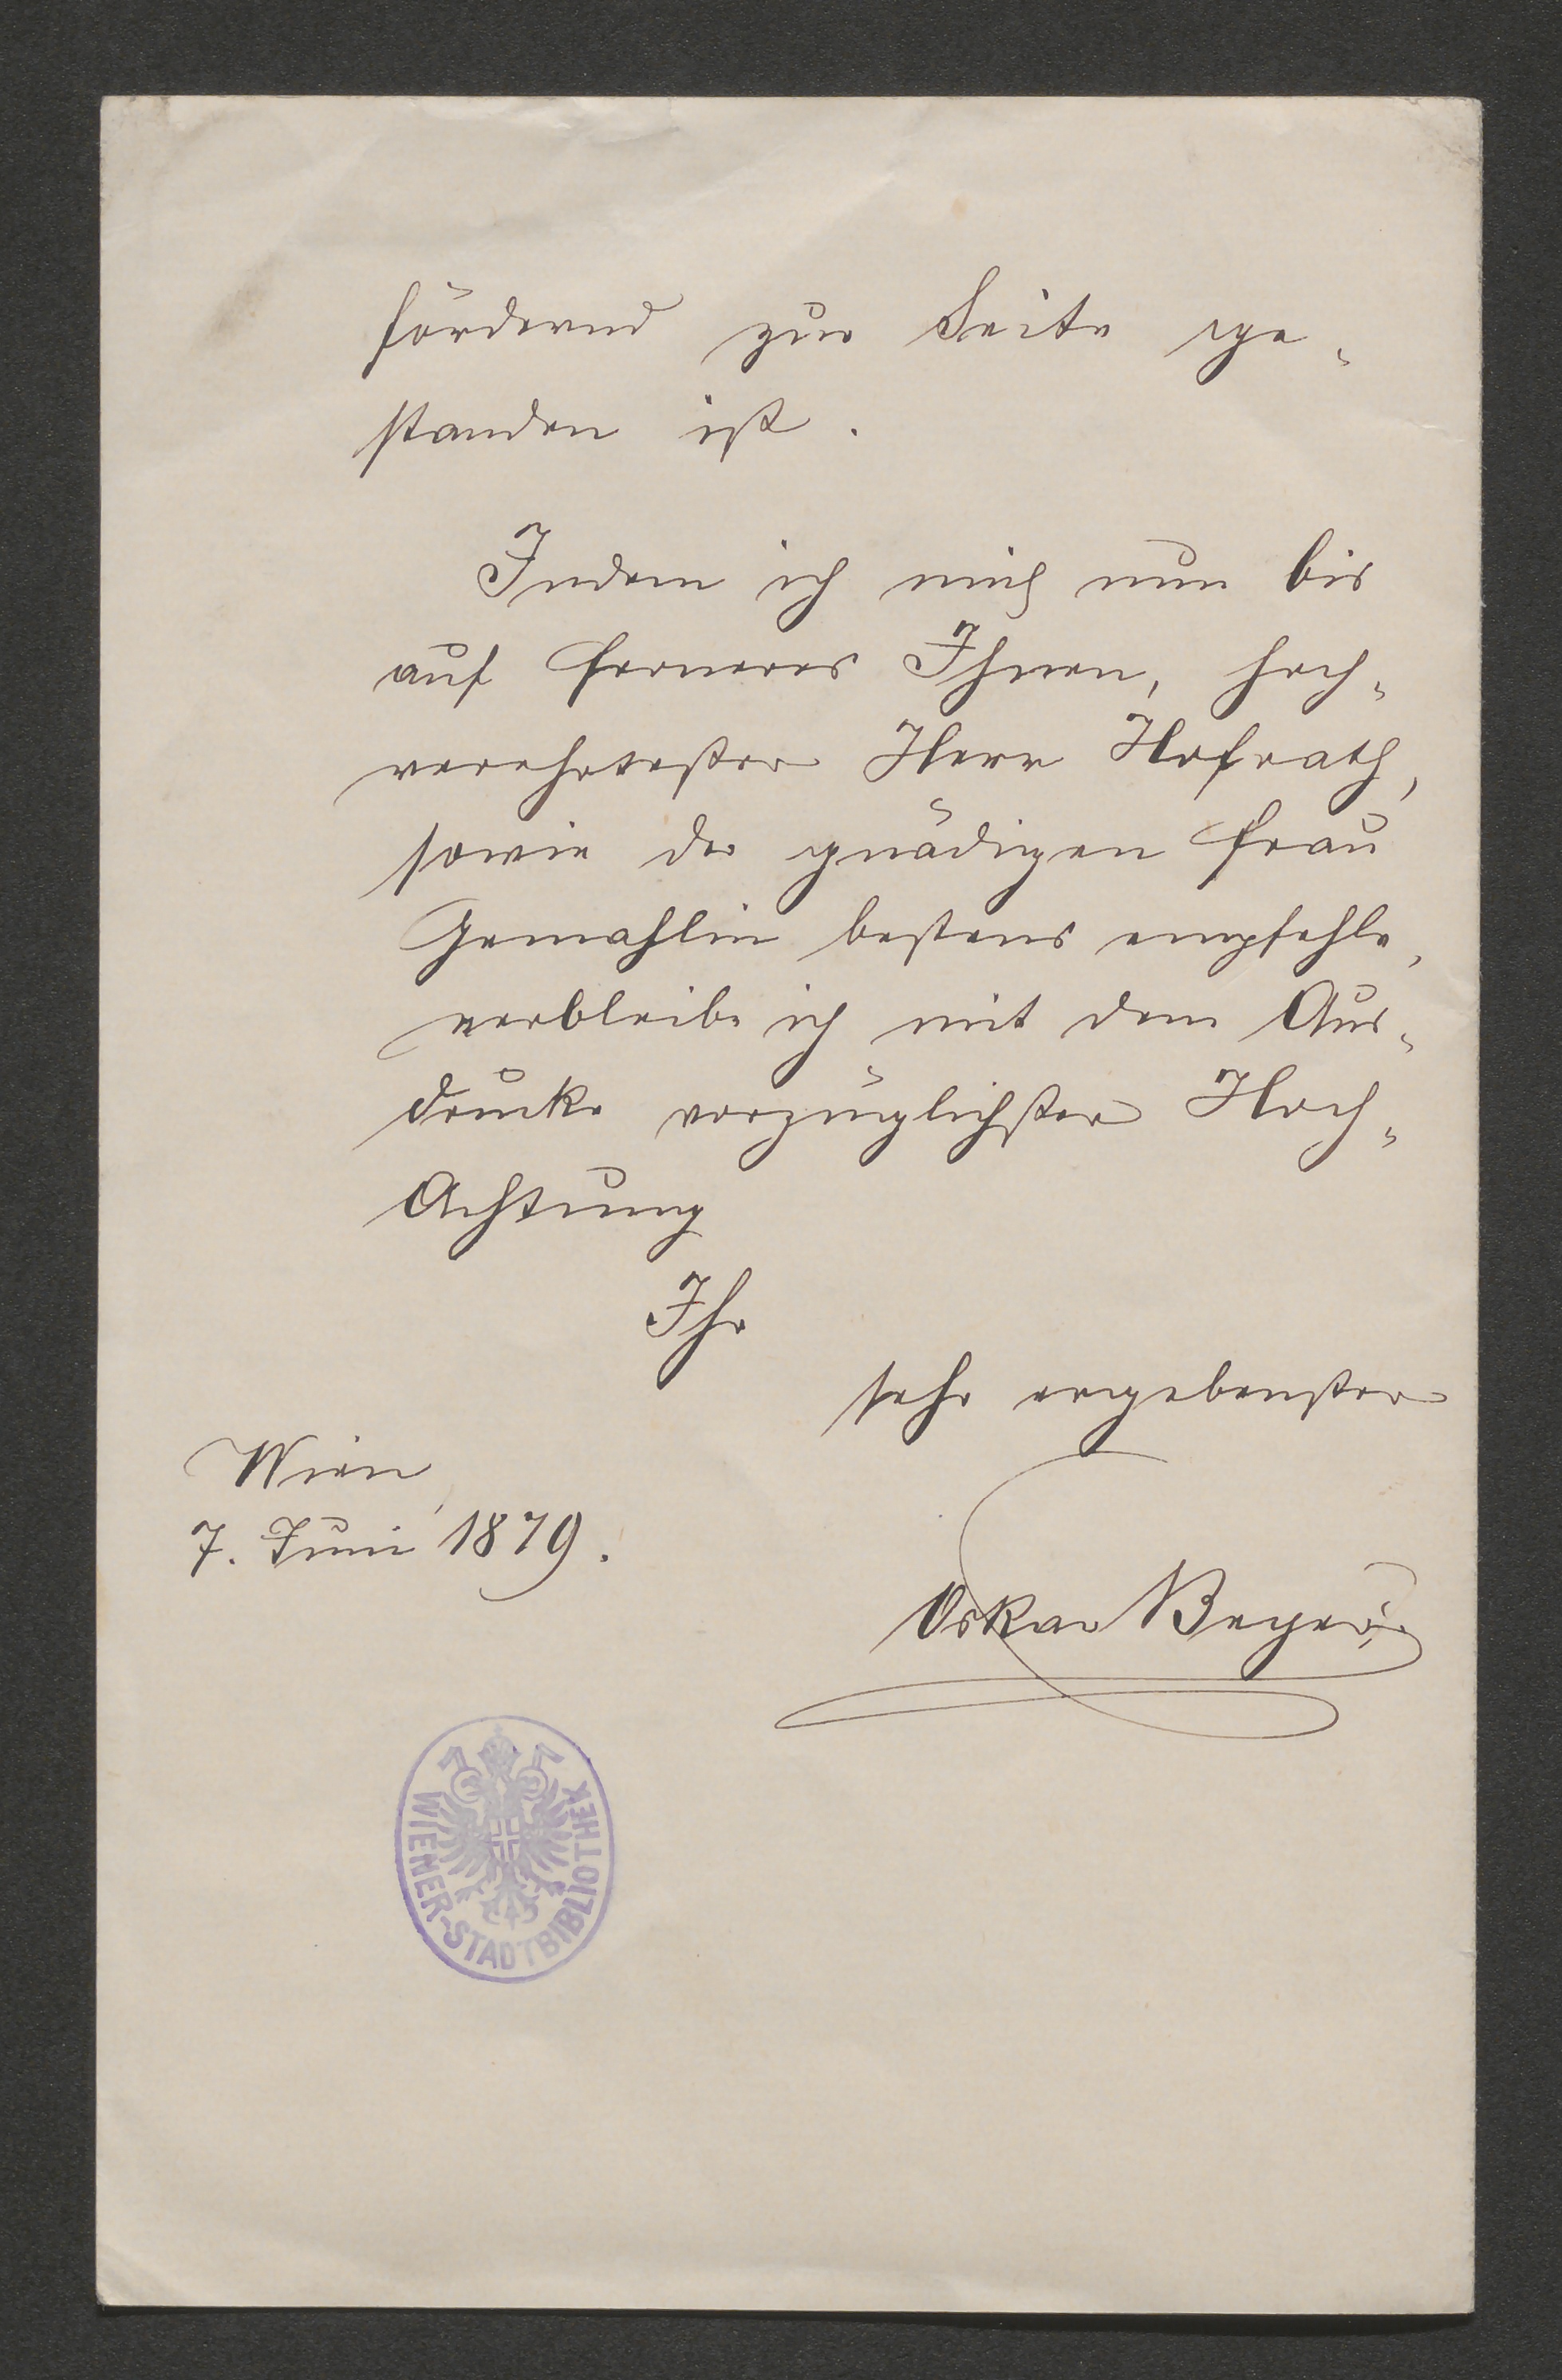 fördernd zur Seite ge-
standen ist.
Indem ich mich nun bis
auf Ferneres Ihnen, hoch-
verehrtester Herr Hofrath,
sowie der gnädigen Frau
Gemahlin bestens empfehle,
verbleibe ich mit dem Aus-
drucke vorzüglichster Hoch-
Achtung
Ihr
sehr ergebenster
Wien,
7. Juni 1879.
Oskar Beyer
WIENER-STADTBIBLIOTHEK